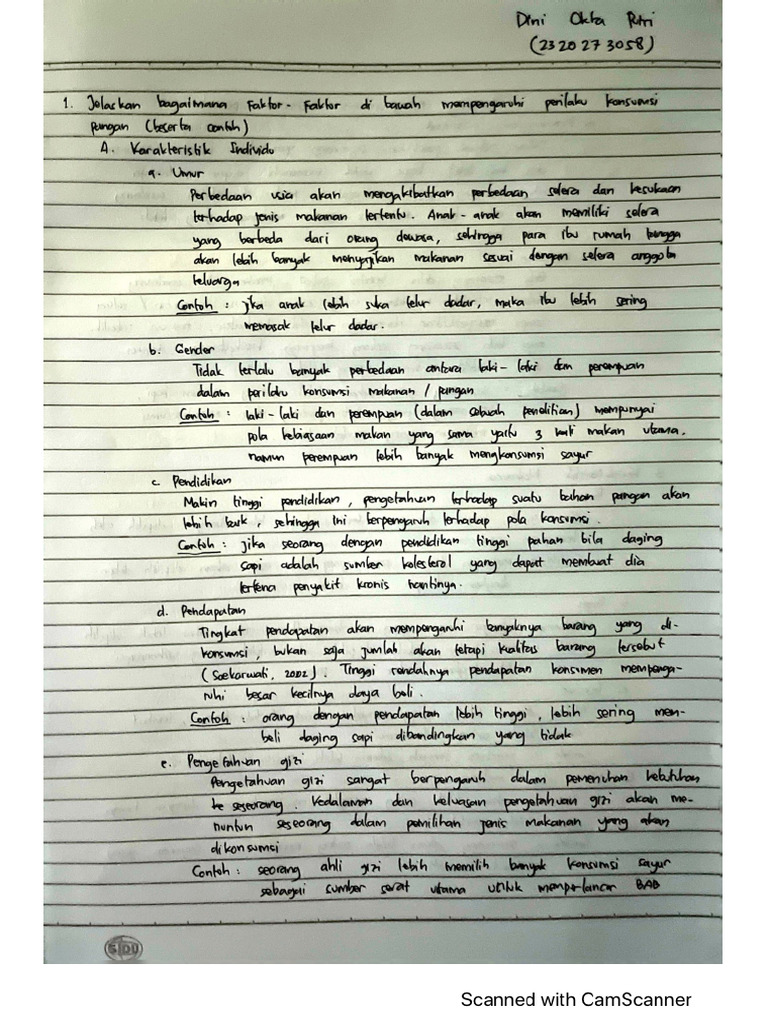 Dini Okta Putri
(2320273058)
1. Jelaskan bagaimana Faktor-Faktor di bawah mempengaruhi perilaku konsumsi
pangan (beserta contoh)
A. Karakteristik Individu
a. Umur
Perbedaan usia akan mengakibatkan perbedaan selera dan kesukaan
terhadap jenis makanan tertentu. Anak-anak akan memiliki selera
yang berbeda dari orang dewasa, sehingga para ibu rumah tangga
akan lebih banyak menyajikan makanan sesuai dengan selera anggota
keluarga
Contoh : jika anak lebih suka telur dadar, maka ibu lebih sering
memasak telur dadar.
b. Gender
Tidak terlalu banyak perbedaan antara laki-laki dan perempuan
dalam perilaku konsumsi makanan / pangan
Contoh : laki-laki dan perempuan (dalam sebuah penelitian) mempunyai
pola kebiasaan makan yang sama yaitu 3 kali makan utama.
namun perempuan lebih banyak mengkonsumsi sayur
c. Pendidikan
Makin tinggi pendidikan, pengetahuan terhadap suatu bahan pangan akan
lebih baik, sehingga ini berpengaruh terhadap pola konsumsi.
Contoh : jika seorang dengan pendidikan tinggi paham bila daging
sapi adalah sumber kolesterol yang dapat membuat dia
terkena penyakit kronis nantinya.
d. Pendapatan
Tingkat pendapatan akan mempengaruhi banyaknya barang yang di-
konsumsi, bukan saja jumlah akan tetapi kualitas barang tersebut
(Soekarwati, 2002). Tinggi rendahnya pendapatan konsumen mempenga-
ruhi besar kecilnya daya beli.
Contoh : orang dengan pendapatan lebih tinggi, lebih sering mem-
beli daging sapi dibandingkan yang tidak
e. Pengetahuan gizi
Pengetahuan gizi sangat berpengaruh dalam pemenuhan kebutuhan
ke seseorang. Kedalaman dan keluasan pengetahuan gizi akan me-
nuntun seseorang dalam pemilihan jenis makanan yang akan
dikonsumsi
Contoh : seorang ahli gizi lebih memilih banyak konsumsi sayur
sebagai sumber serat utama untuk memperlancar BAB
SIDU
Scanned with CamScanner